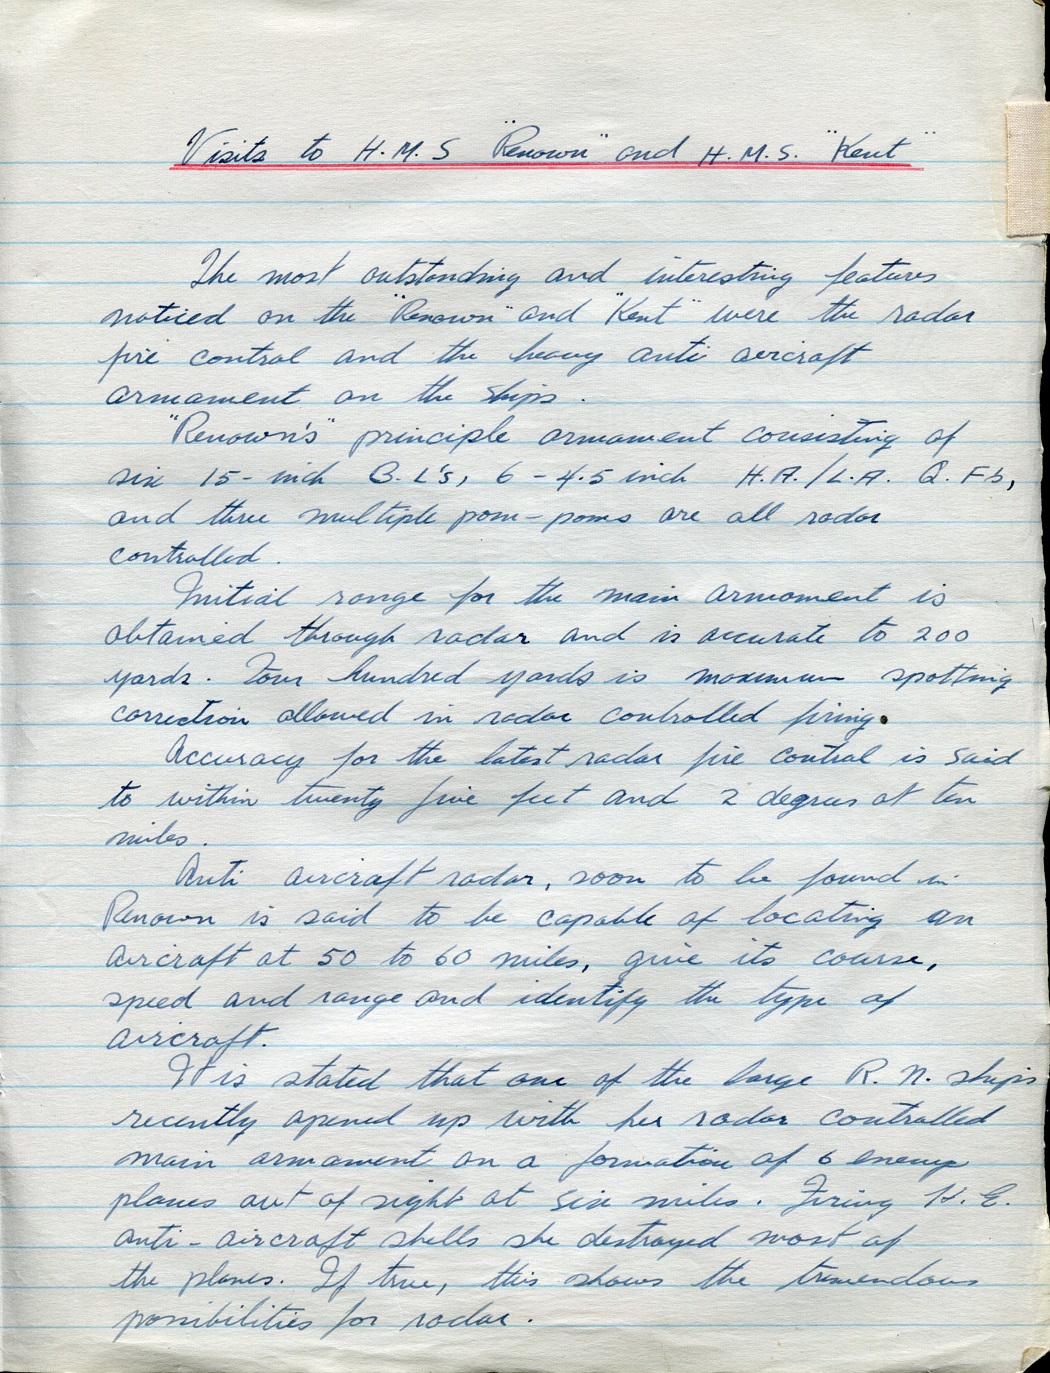 Visits to H.M.S "Renown" and H.M.S. "Kent"
The most outstanding and interesting features
noticed on the "Renown" and "Kent" were the radar
fire control and the heavy anti aircraft
armament on the ships.
"Renown's" principle armament consisting of
six 15-inch B.L's, 6-4.5 inch H.A./L.A. Q.Fs,
and three multiple pom-poms are all radar
controlled.
Initial range for the main armament is
obtained through radar and is accurate to 200
yards. Four hundred yards is maximum spotting
correction allowed in radar controlled firing.
Accuracy for the latest radar fire control is said
to within twenty five feet and 2 degrees at ten
miles.
Anti aircraft radar, soon to be found in
Renown is said to be capable of locating an
aircraft at 50 to 60 miles, give its course,
speed and range and identify the type of
aircraft.
It is stated that one of the large R.N. ships
recently opened up with her radar controlled
main armament on a formation of 6 enemy
planes out of sight at six miles. Firing H.E.
anti-aircraft shells she destroyed most of
the planes. If true, this shows the tremendous
possibilities for radar.